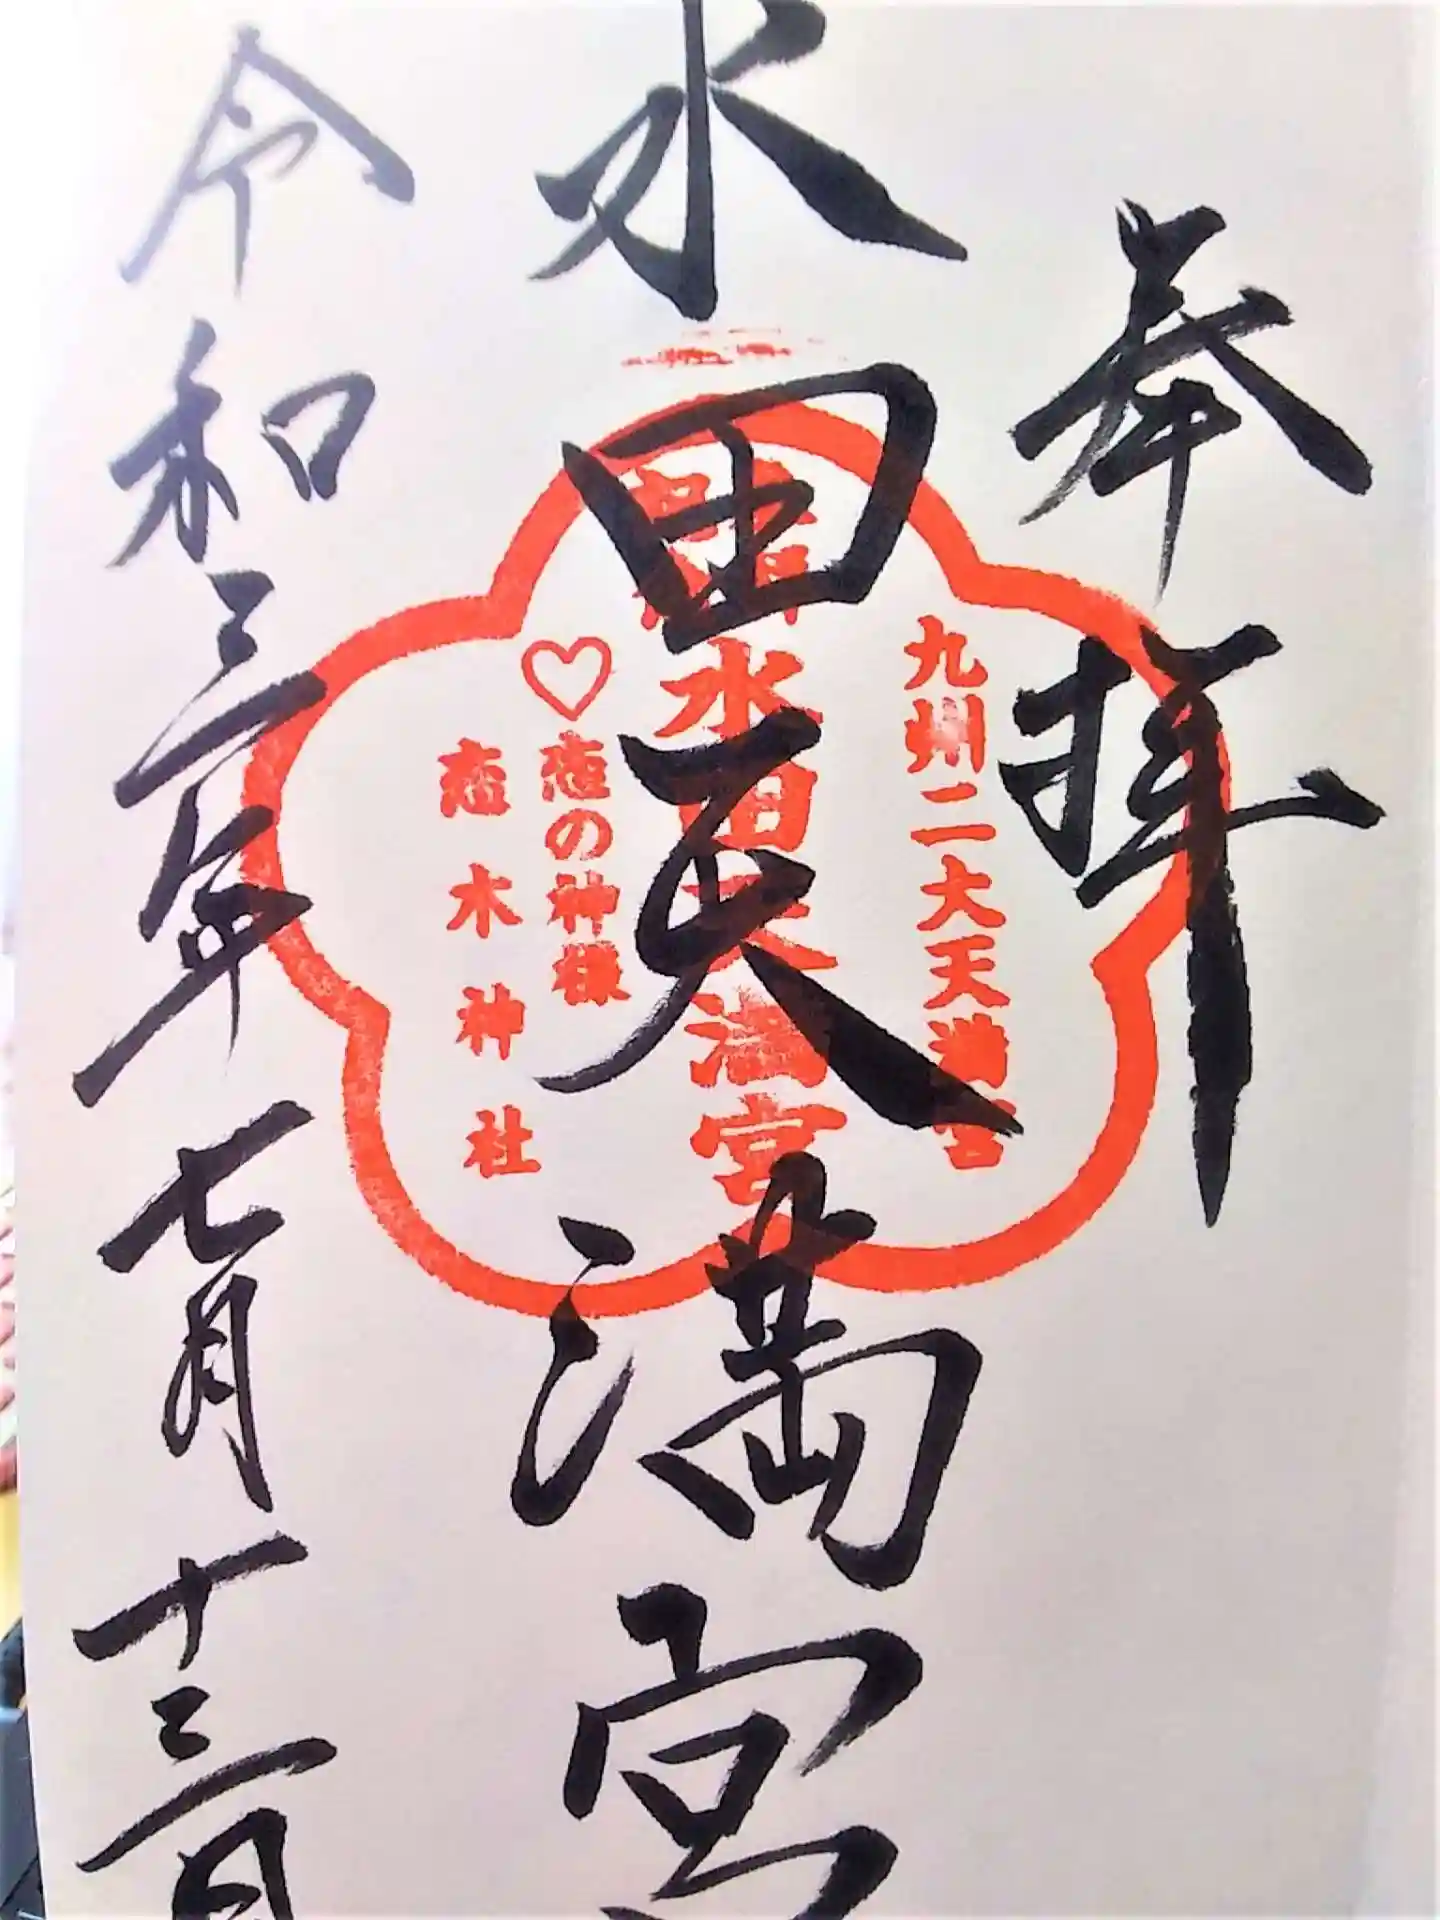 奉拝
九州二大天満宮
水田天満宮
水田天満宮
♡恋の神様
恋木神社
令和三年七月十三日